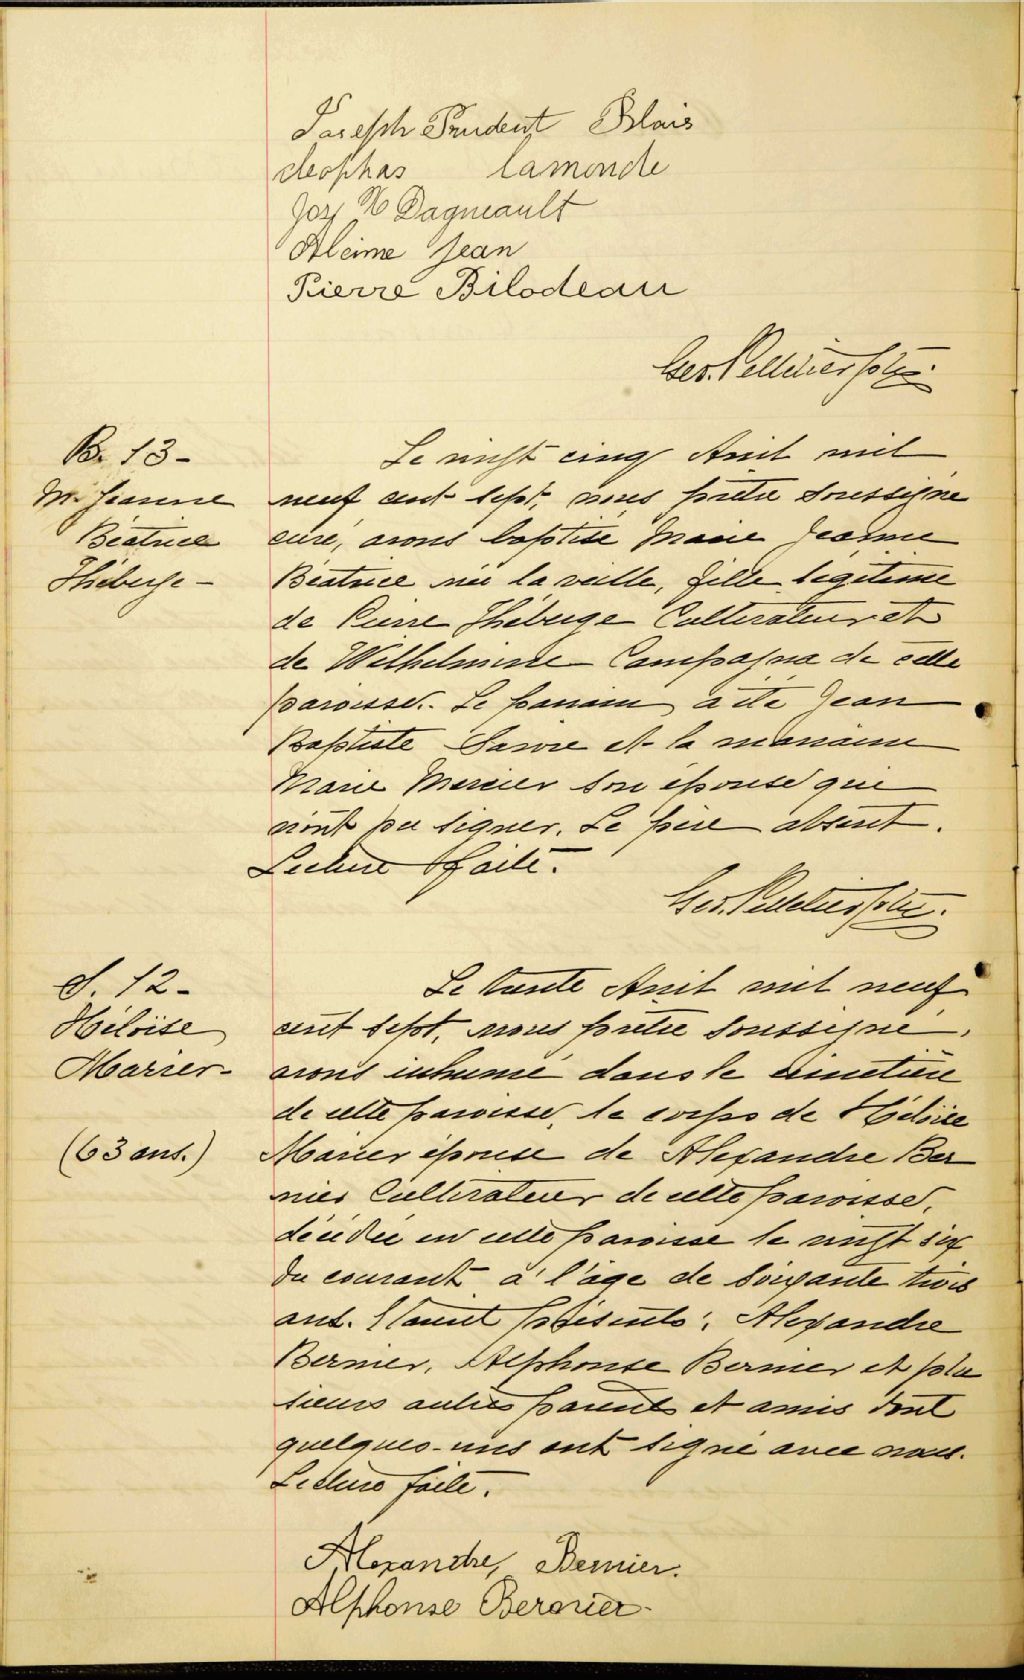 Joseph Prudent Blais
cleophas lamonde
Jos N Dagneault
Alcime Jean
Pierre Bilodeau
Geo. Pelletier ptre.
B. 13 -
M. Jeanne
Béatrice
Théberge -
Le vingt cinq Avril mil
neuf cent sept, nous prêtre soussigné
curé, avons baptisé Marie Jeanne
Béatrice née la veille, fille légitime
de Pierre Théberge Cultivateur et
de Wilhelmine Campagna de cette
paroisse. Le parrain a été Jean
Baptiste Savoie et la marraine
Marie Mercier son épouse qui
n'ont pu signer. Le père absent.
Lecture faite.
Geo. Pelletier ptre.
S. 12 -
Héloïse
Marier -
(63 ans.)
Le trente Avril mil neuf
cent sept, nous prêtre soussigné,
avons inhumé dans le cimetière
de cette paroisse, le corps de Héloïse
Marier épouse de Alexandre Ber
nier Cultivateur de cette paroisse,
décédée en cette paroisse le vingt six
du courant à l'âge de soixante trois
ans. Etaient présents: Alexandre
Bernier, Alphonse Bernier et plu
sieurs autres parents et amis dont
quelques-uns ont signé avec nous.
Lecture faite.
Alexandre, Bernier.
Alphonse Bernier -